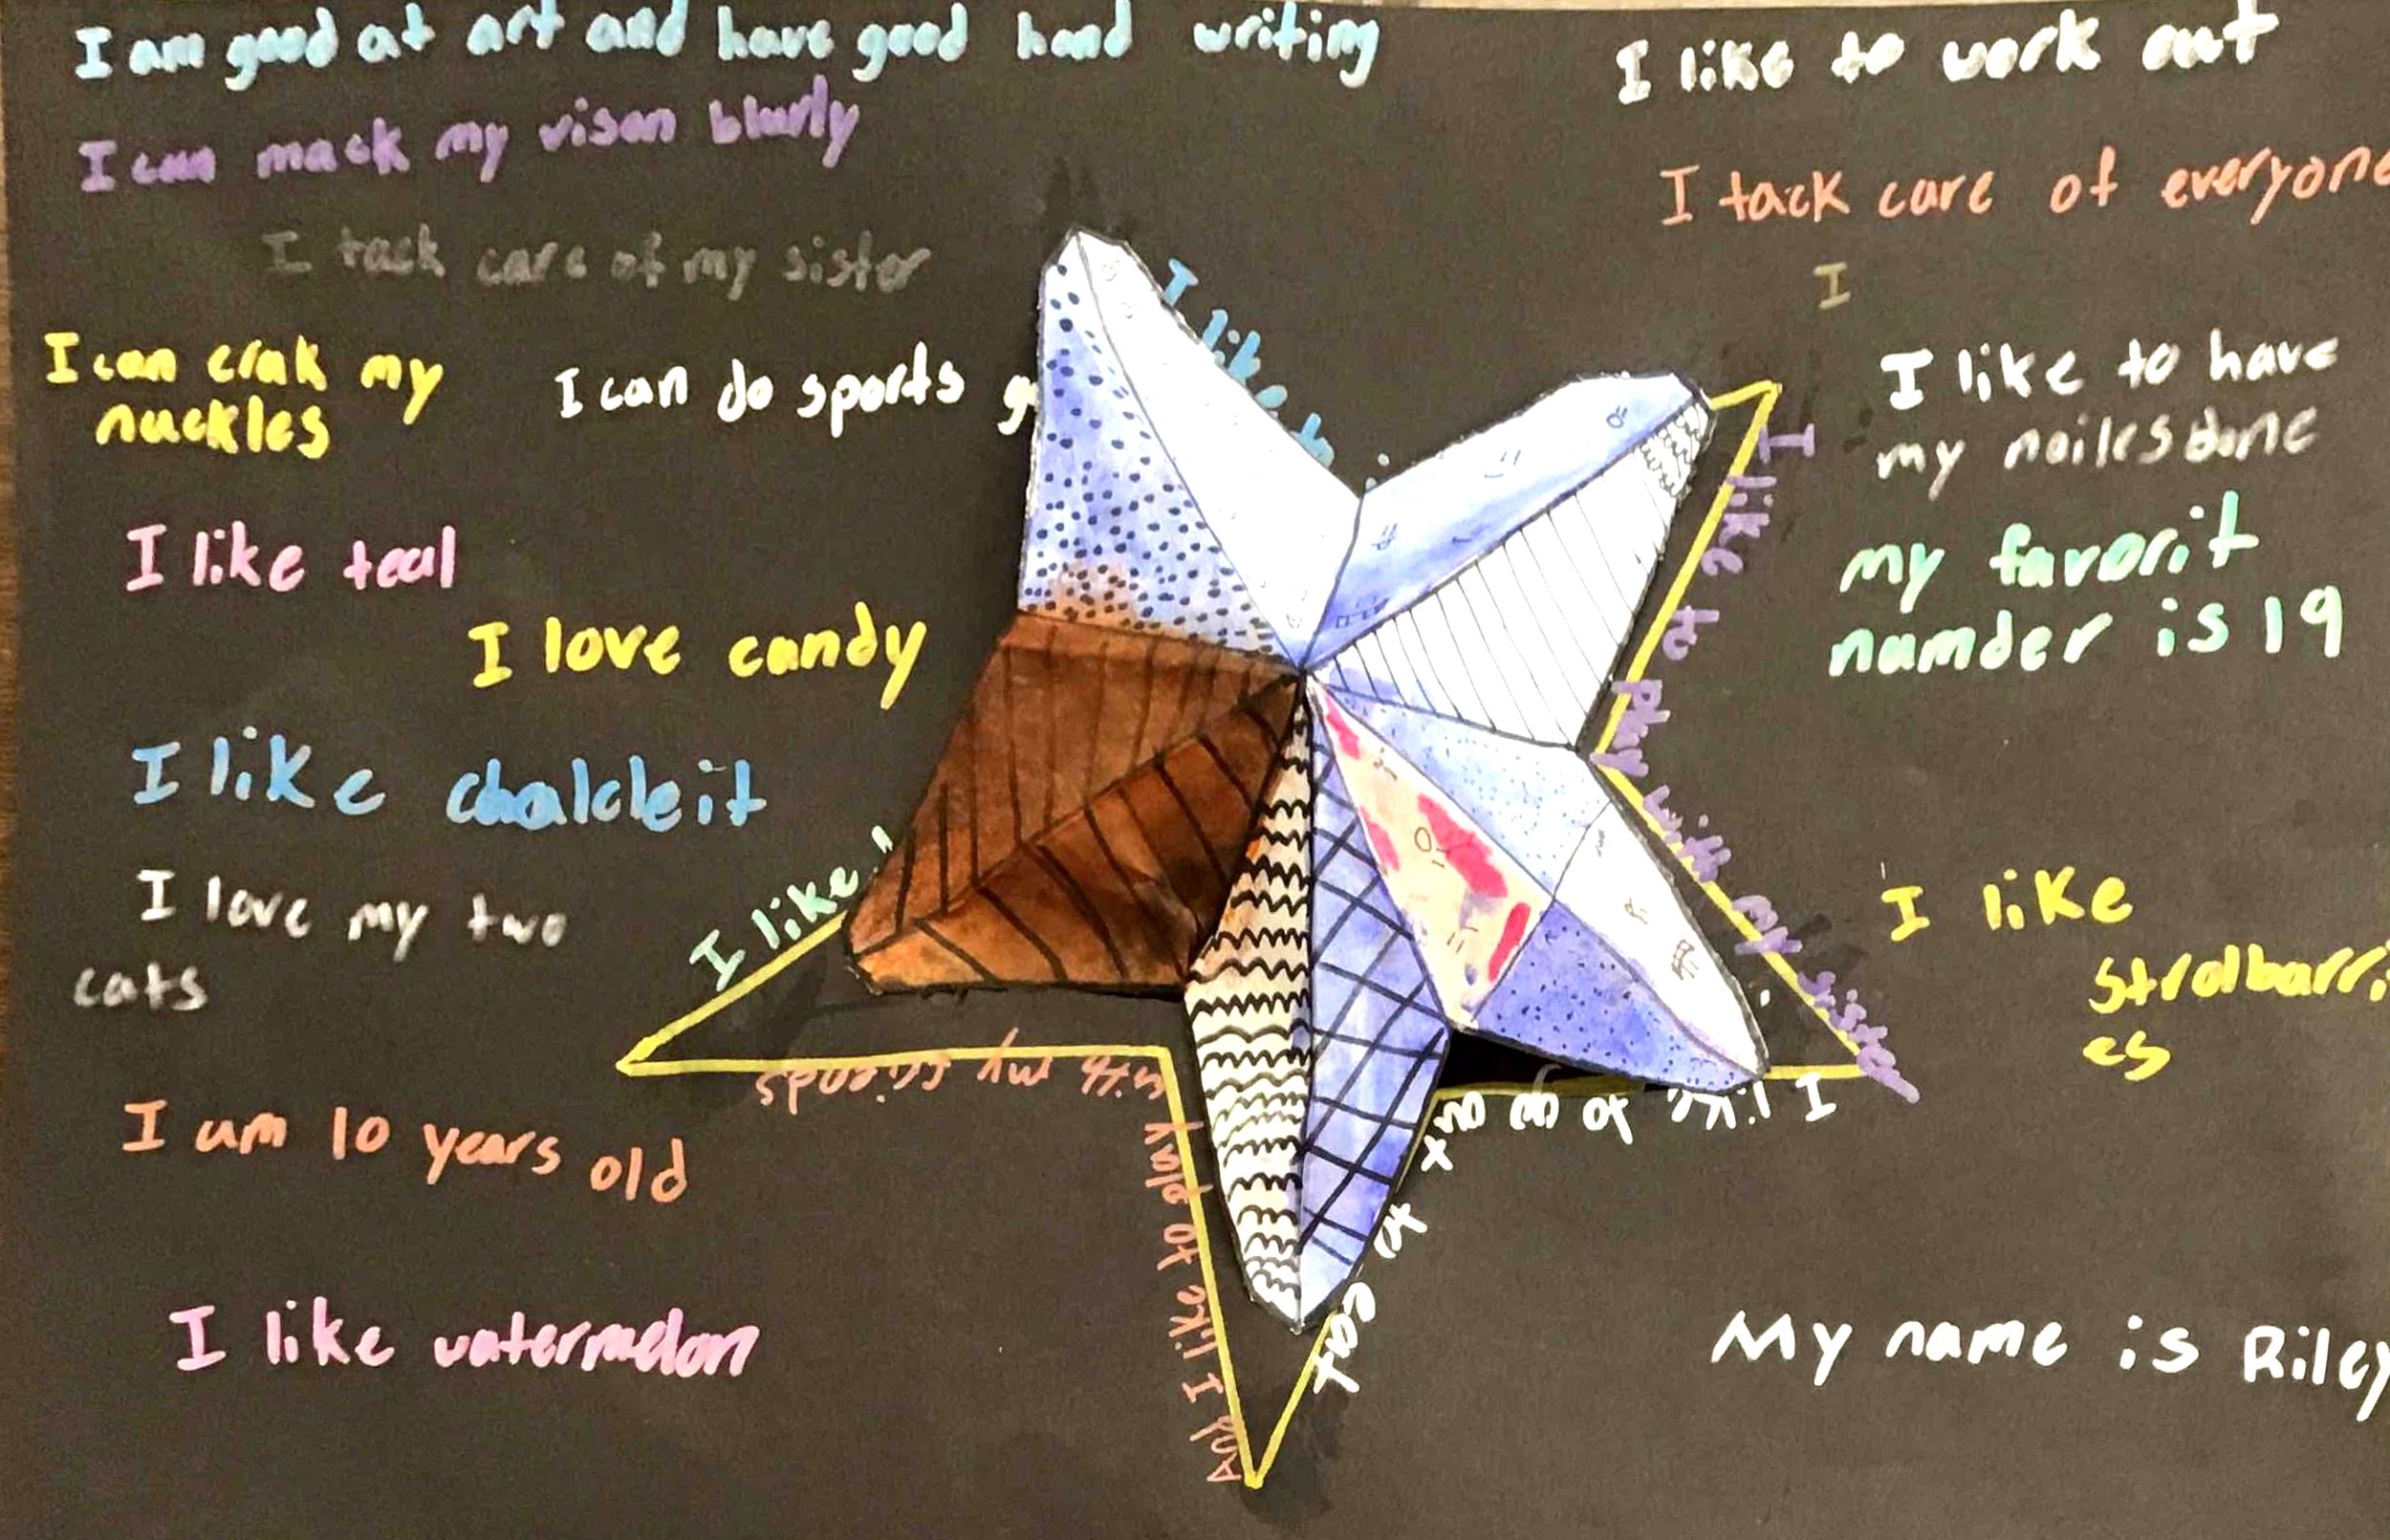 I am good at art and have good hand writing
I can mack my vison blurly
I tack care of my sister
I can crak my
nuckles
I can do sports g
I like teal
I love candy
I like chalcleit
I love my two
cats
I am 10 years old
I like watermelon
I like to work out
I tack care of everyone
I
I like to have
my nailes done
my favorit
namder is 19
I like
strolbarri
es
My name is Riley
I like to
I like to play with my sister
I like to go out
to eat
And I like to play
with my friends
I like